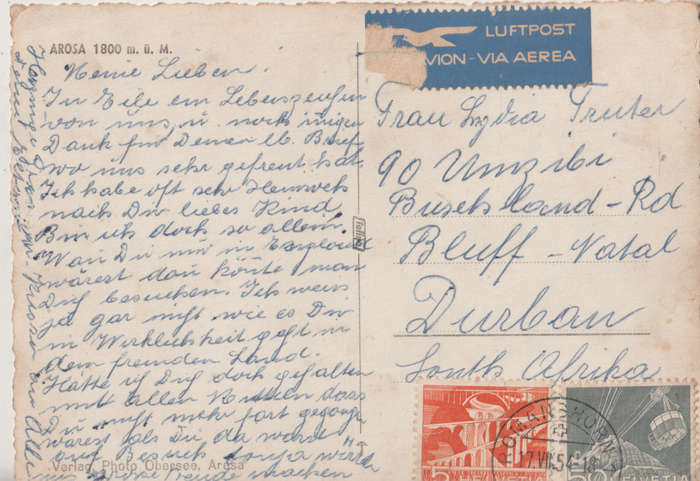 AROSA 1800 m. ü. M.
Meine Lieben.
In Eile ein Lebenszeichen
von uns u. noch innigen
Dank für Deinen lb. Brief
wo uns sehr gefreut hat.
Ich habe oft sehr Heimweh
nach Dir liebes Kind
Bin ich doch so allein.
Wan Du nur in England
wärest dan könte man
Dich besuchen. Ich weis
ja gar nicht wie es Dir
in Wirklichkeit geht in
dem fremden Land.
Hätte ich Dich doch gehalten
mit allen Mitteln dass
Du nicht mehr fort gegangen
wärest als Du da warst
auf Besuch.
machen
Verlag Photo Obersee, Arosa
LUFTPOST
AVION - VIA AEREA
Frau Lydia Truter
90 Umzibi
Buschland-Rd
Bluff - Natal
Durban
South Afrika
ROMANSHORN
17.VII.54-18
5
HELVETIA